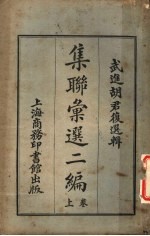 武進胡君復選輯
集聯彙選二編
卷上
上海商務印書館出版